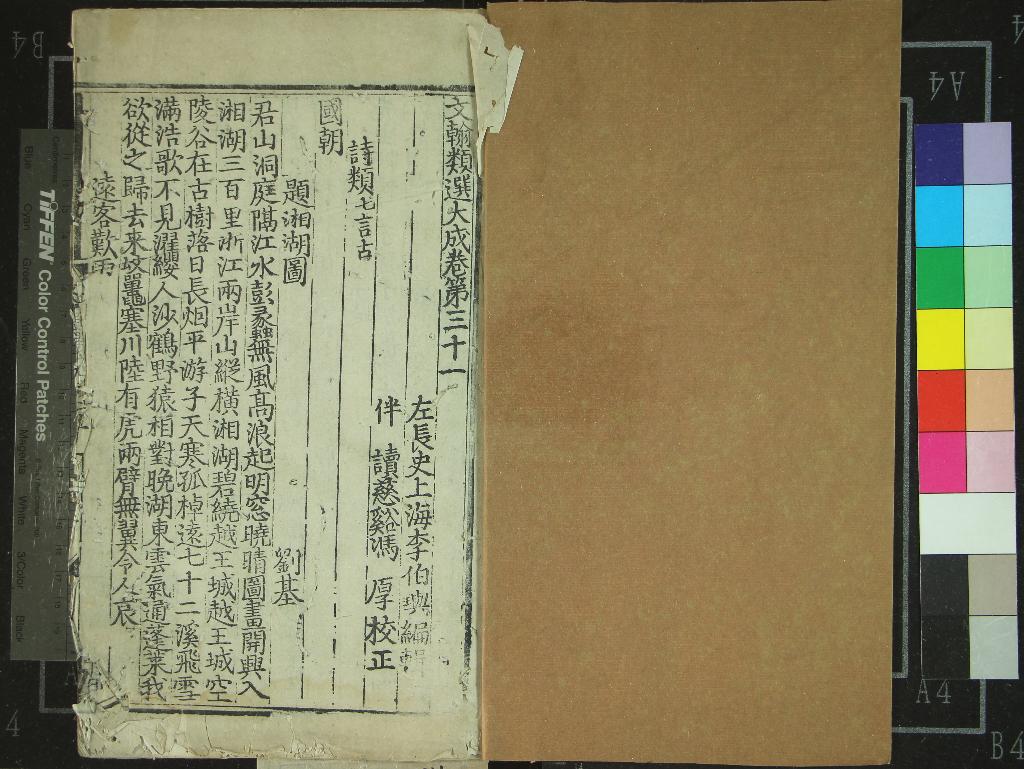 文翰類選大成卷第三十一
左長史上海李伯璵編輯
伴讀慈谿馮厚校正
詩類七言古
國朝
題湘湖圖
劉基
君山洞庭隔江水彭蠡無風高浪起明窓曉晴圖畫開興入
湘湖三百里浙江兩岸山縱橫湘湖碧繞越王城越王城空
陵谷在古樹落日長烟平游子天寒孤棹遠七十二溪飛雪
滿浩歌不見濯纓人沙鶴野猿相對晚湖東雲氣通蓬萊我
欲從之歸去來蛟鼉塞川陸有虎兩臂無翼令人哀
遠客歎雨
TIFFEN Color Control Patches
Blue
Cyan
Green
Yellow
Red
Magenta
White
3/Color
Black
B4
A4
A4
B4
4